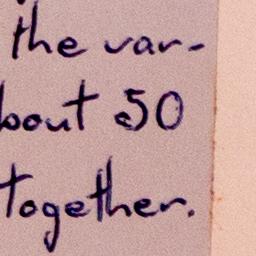 the var-
bout 50
together.